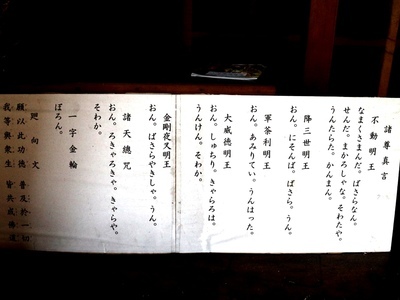 諸尊真言
不動明王
なまくさまんだ。ばさらなん。
せんだ。まかろしゃな。そわたや。
うんたらた。かんまん。
降三世明王
おん。にそんば。ばさら。うん。
軍荼利明王
おん。あみりてい。うんはった。
大威徳明王
おん。しゅちり。きゃらろは。
うんけん。そわか。
金剛夜叉明王
おん。ばさらやきしゃ。うん。
諸天總咒
おん。ろきゃろきゃ。きゃらや。
そわか。
一字金輪
ぼろん。
廻向文
願以此功徳 普及於一切
我等與衆生 皆共成佛道